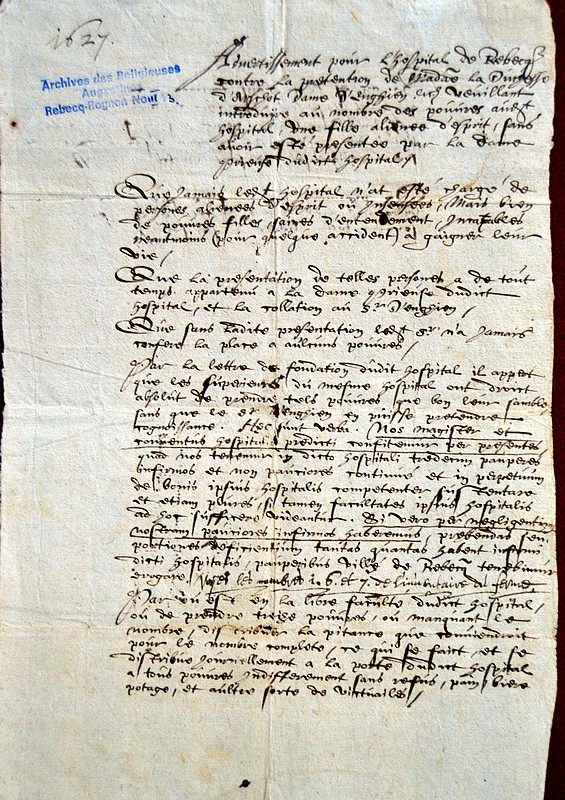 1627.
Archives des Religieuses
Augustines
Rebecq-Rognon Nouv. s.
Advertissement pour l'hospital de Rebecq
contre la pretention de Madame la Ducesse
d'Arschot Dame d'Enghien etc. veuillant
introduire au nombre des pouvres audt
hospital, une fille alienee d'esprit, sans
avoir esté presentee par la Dame
Prieuse dudict hospital.
Que jamais ledt hospital n'at esté chargé de
persones alienees d'esprit ou insensees, Mais bien
de pouvres filles saines d'entendement, incapables
neantmoins (pour quelque accident) a gaigner leur
vie,
Que la presentation de telles persones a de tout
temps appartenu a la dame Prieuse dudict
hospital, et la collation au Sr d'Enghien,
Que sans ladite presentation ledt Sr n'a jamais
conferé la place a aulcuns pouvres,
Par la lettre de fondation dudit hospital il appert
que les superieurs du mesme hospital ont droict
absolut de prendre tels pauvres que bon leur samble
sans que le Sr d'Enghien en puisse pretendre
cognoissance. Haec sunt verba. Nos magister et
conventus hospitalis predicti confitemur per presentes
quod nos tenemur in dicto hospitali tredecim pauperes
infirmos et non pauciores continué et in perpetuum
de bonis ipsius hospitalis competenter sustentare
et etiam plures, si tamen facultates ipsius hospitalis
ad hoc sufficere videantur. Si vero per negligentiam
nostram pauciores infirmos haberemus, prebendas seu
portiones deficientium tantas quantas habent infirmi
dicti hospitalis, pauperibus villae de Rebecq tenebimur
erogare. Voyez les nombres 6 et 7 de l'inventaire
Par ou est en la libre faculté dudict hospital,
ou de prendre treize pouvres, ou manquant le
nombre, distribuer la pitance que conviendroit
pour le nombre complete, ce qui se faict, et se
distribue journellement a la porte dudict hospital
a tous pouvres indifferement sans refus, pain, biere
potage, et aultre sorte de victuailles,